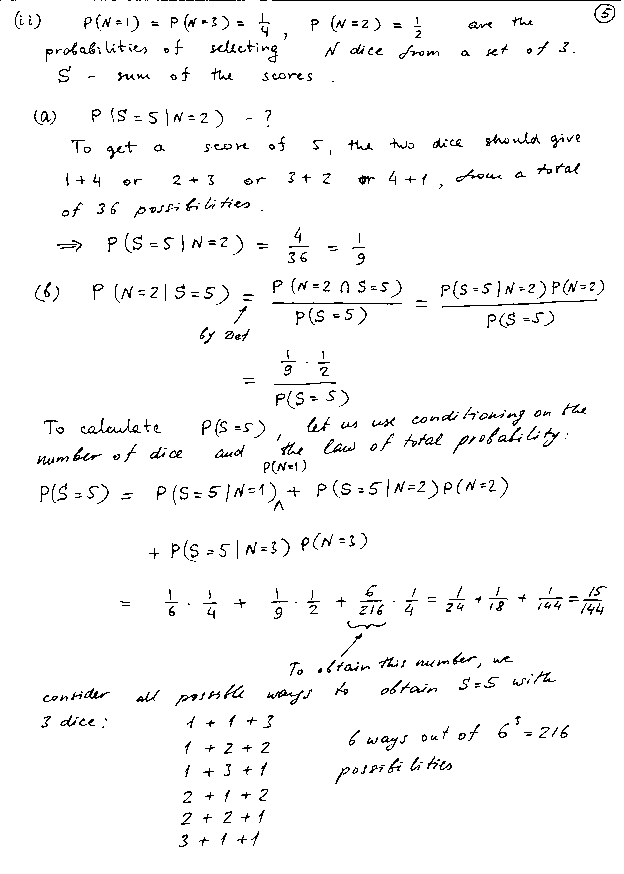 (ii) P(N=1) = P(N=3) = 1/4, P(N=2) = 1/2 are the (5)
probabilities of selecting N dice from a set of 3.
S - sum of the scores.
(a) P(S=5|N=2) - ?
To get a score of 5, the two dice should give
1+4 or 2+3 or 3+2 or 4+1, from a total
of 36 possibilities.
⇒ P(S=5|N=2) = 4/36 = 1/9
(b) P(N=2|S=5) = P(N=2 ∩ S=5)/P(S=5) = P(S=5|N=2)P(N=2)/P(S=5)
by Def
= (1/9 · 1/2)/P(S=5)
To calculate P(S=5), let us use conditioning on the
number of dice and the law of total probability:
P(S=5) = P(S=5|N=1) P(N=1) + P(S=5|N=2)P(N=2)
+ P(S=5|N=3) P(N=3)
= 1/6 · 1/4 + 1/9 · 1/2 + 6/216 · 1/4 = 1/24 + 1/18 + 1/144 = 15/144
To obtain this number, we
consider all possible ways to obtain S=5 with
3 dice: 1 + 1 + 3
1 + 2 + 2 6 ways out of 6³ = 216
1 + 3 + 1 possibilities
2 + 1 + 2
2 + 2 + 1
3 + 1 + 1